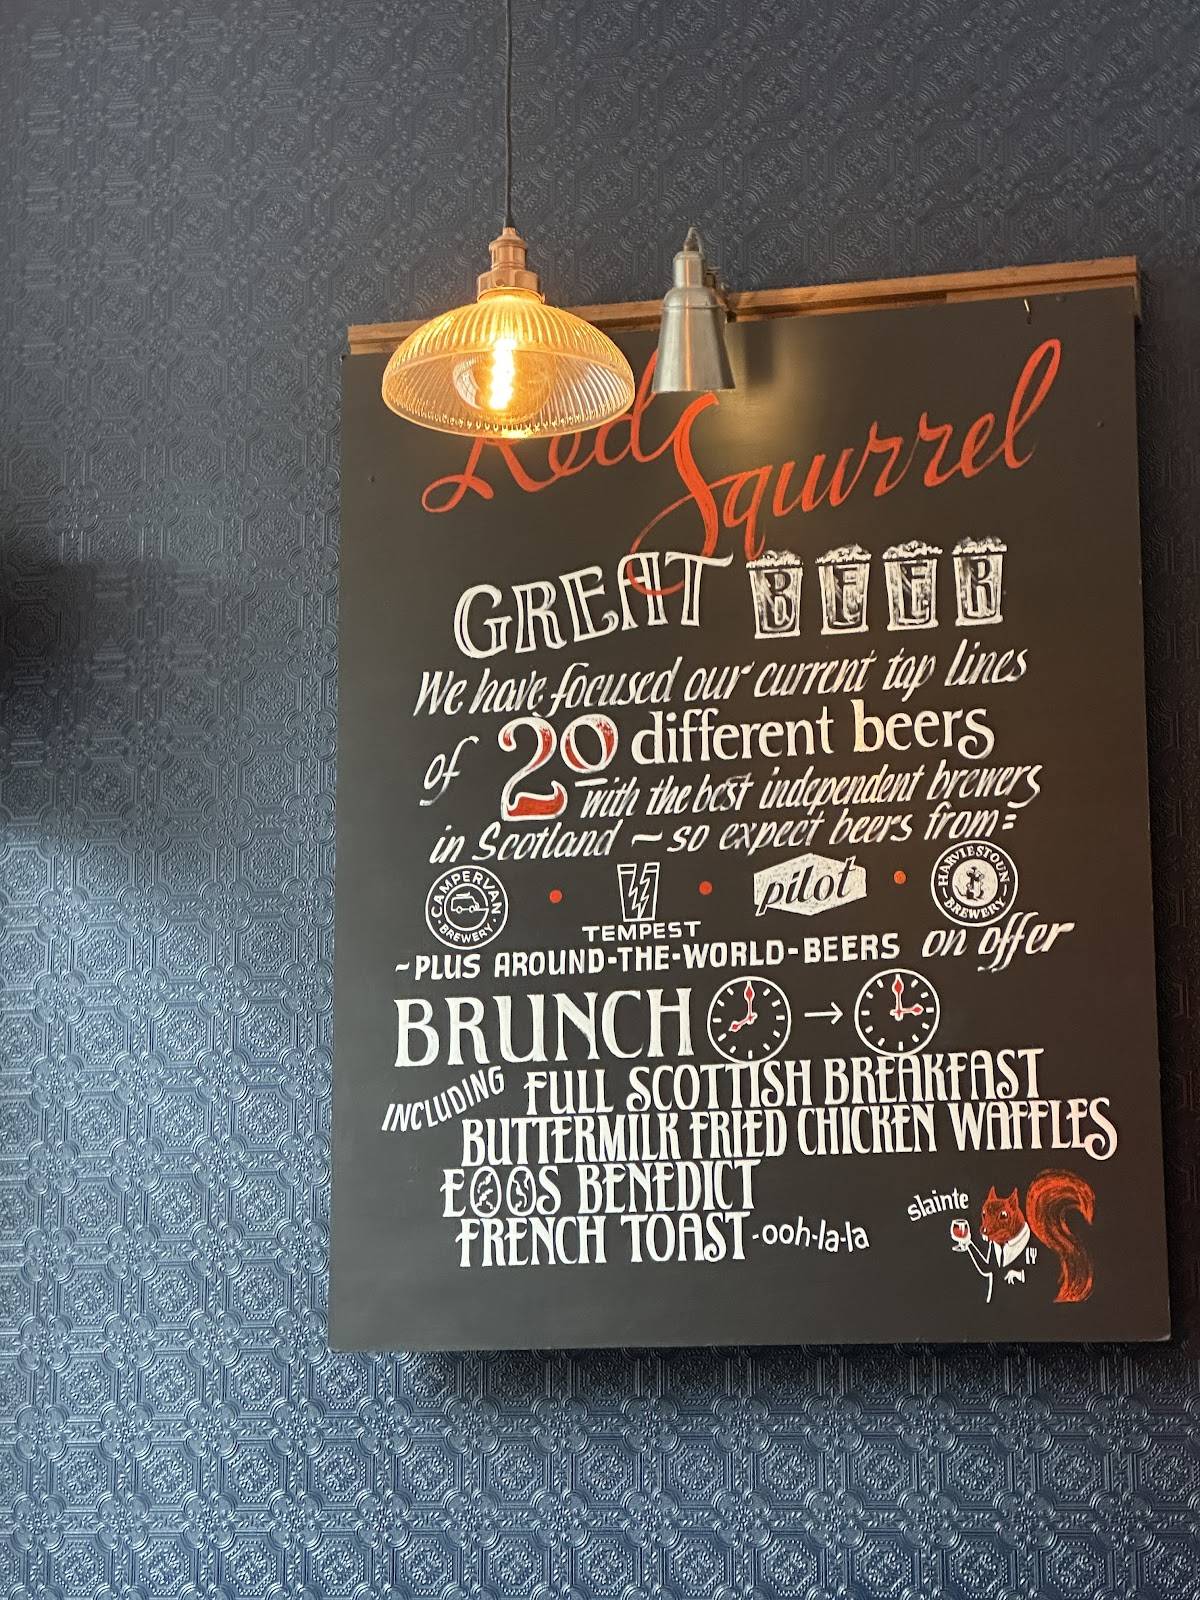 Red Squirrel
GREAT BEER
We have focused our current tap lines
of 20 different beers
with the best independent brewers
in Scotland ~ so expect beers from:
CAMPERVAN BREWERY
TEMPEST
pilot
HARVIESTOUN BREWERY
~PLUS AROUND-THE-WORLD-BEERS on offer
BRUNCH →
INCLUDING FULL SCOTTISH BREAKFAST
BUTTERMILK FRIED CHICKEN WAFFLES
EGGS BENEDICT
FRENCH TOAST-ooh-la-la
slainte